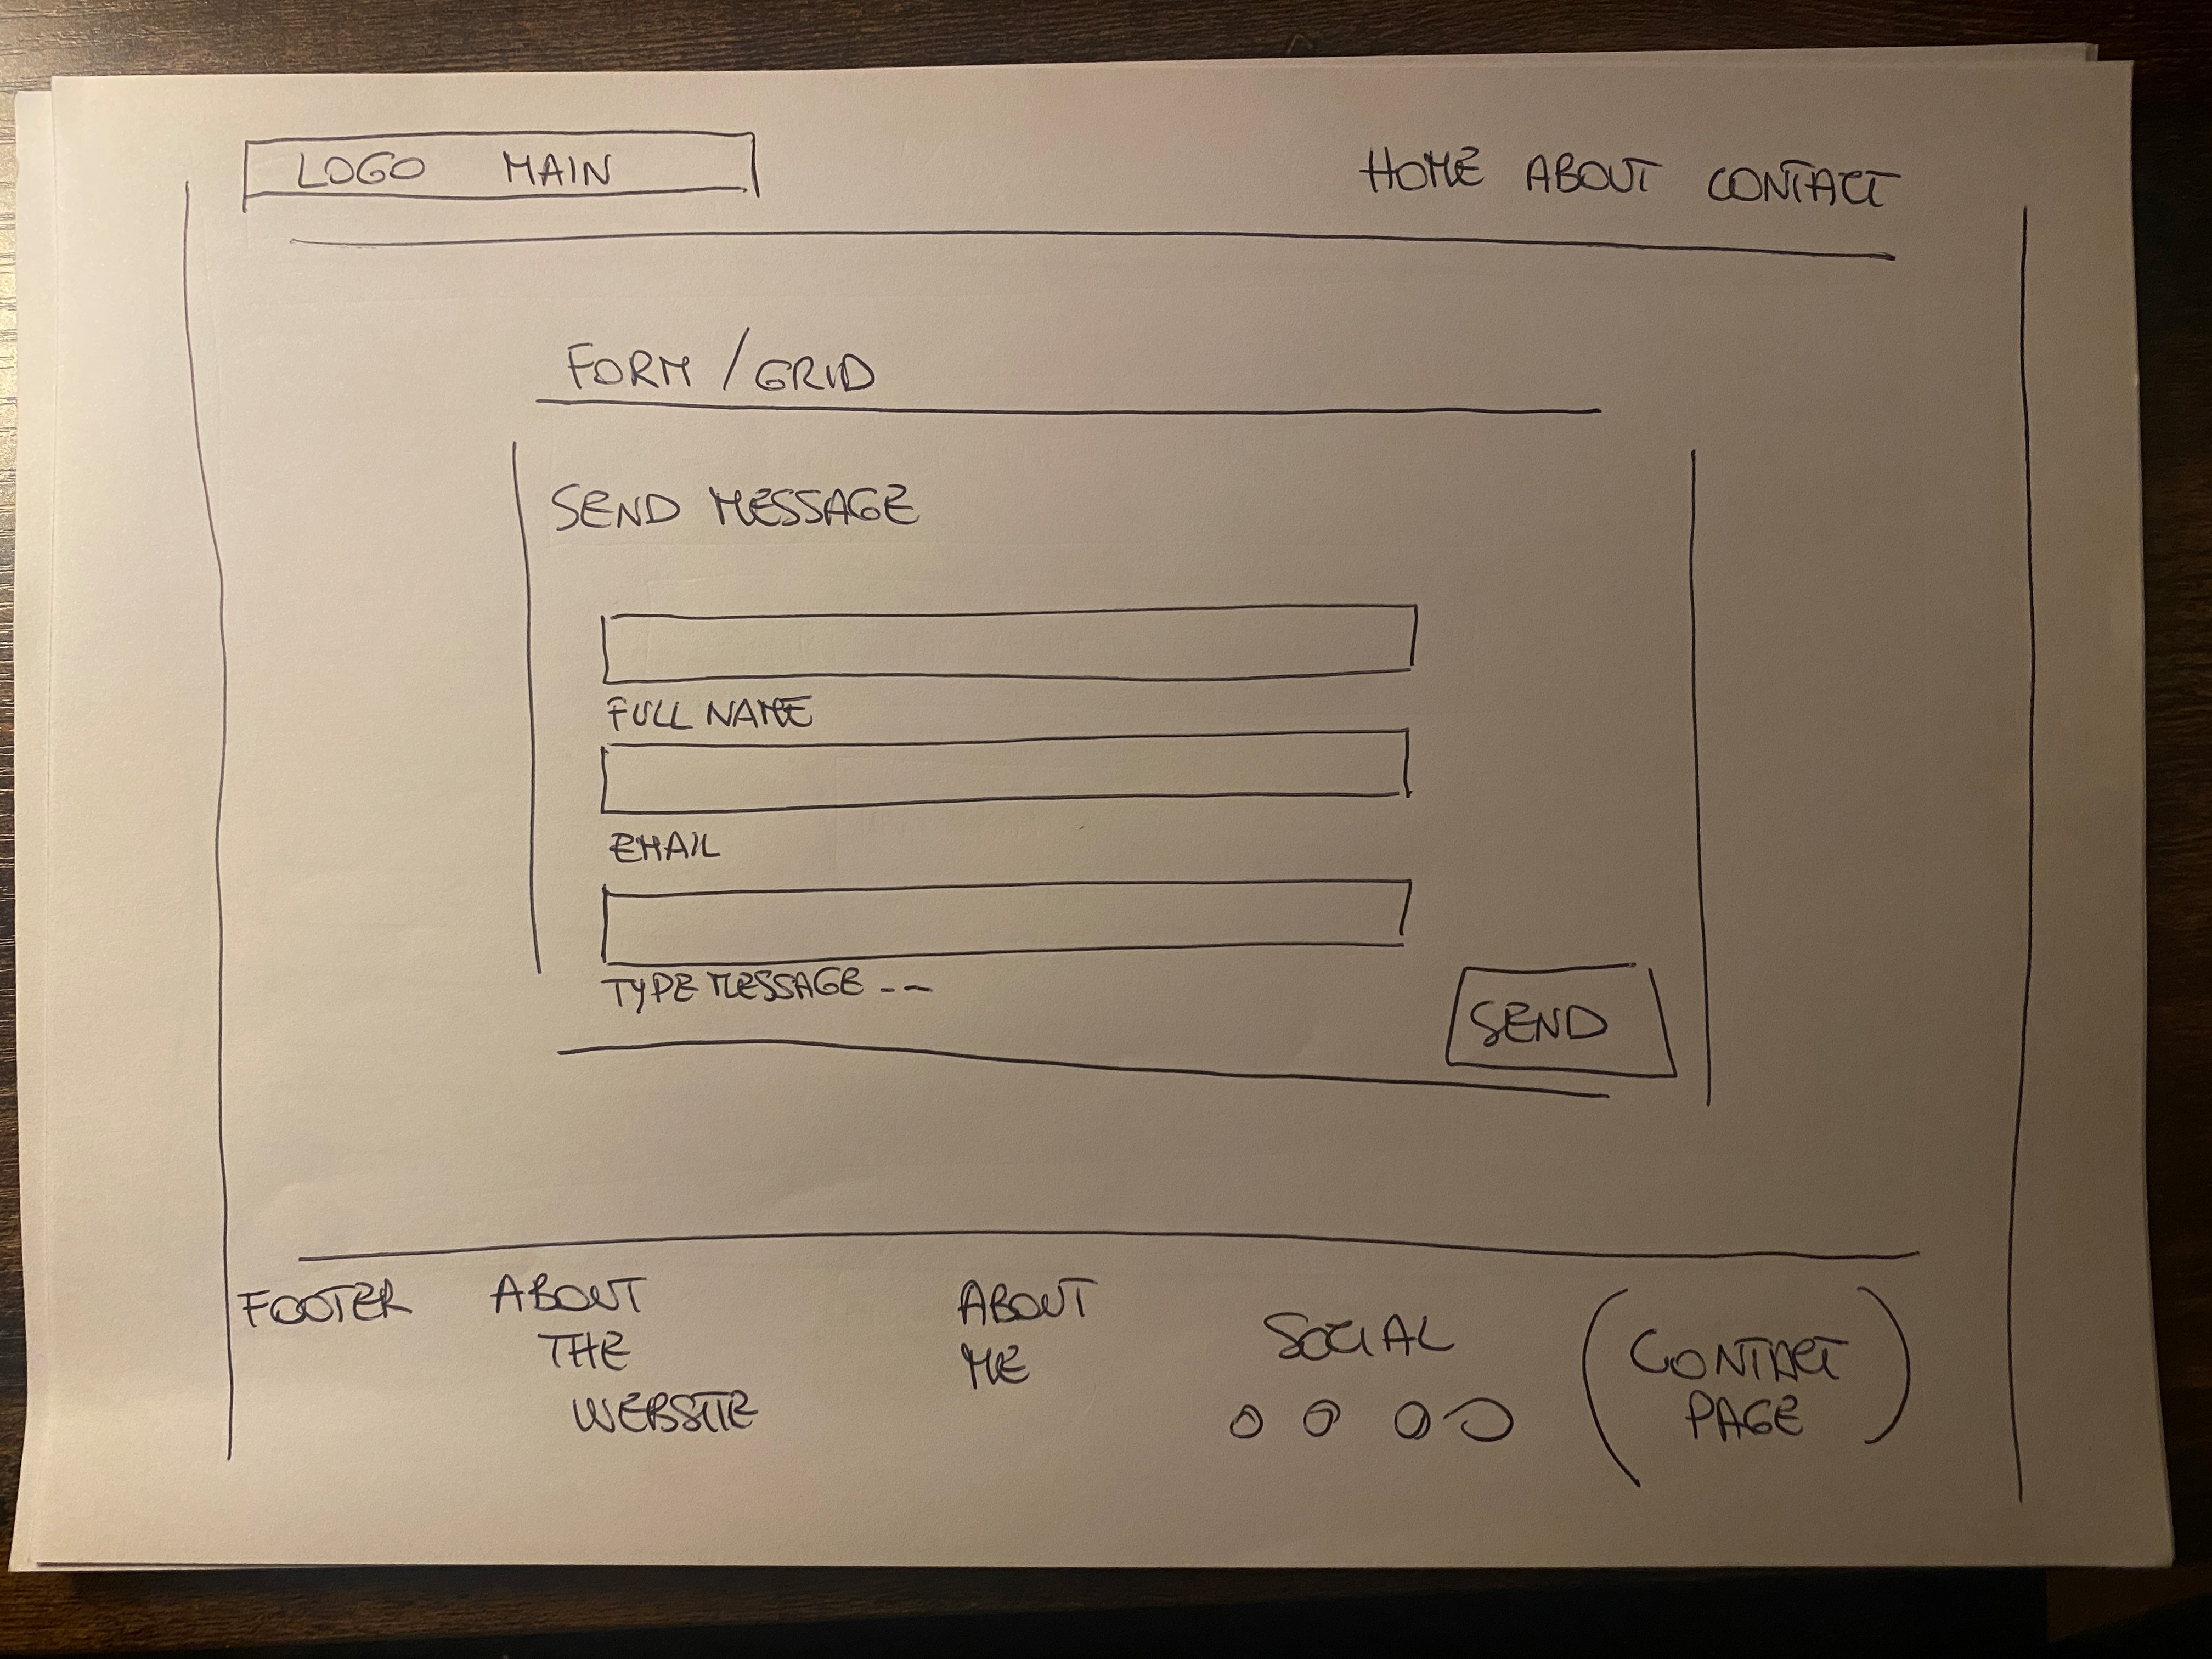 LOGO MAIN
HOME ABOUT CONTACT
FORM / GRID
SEND MESSAGE
FULL NAME
EMAIL
TYPE MESSAGE --
SEND
FOOTER
ABOUT
THE
WEBSITE
ABOUT
ME
SOCIAL
(CONTACT
PAGE)